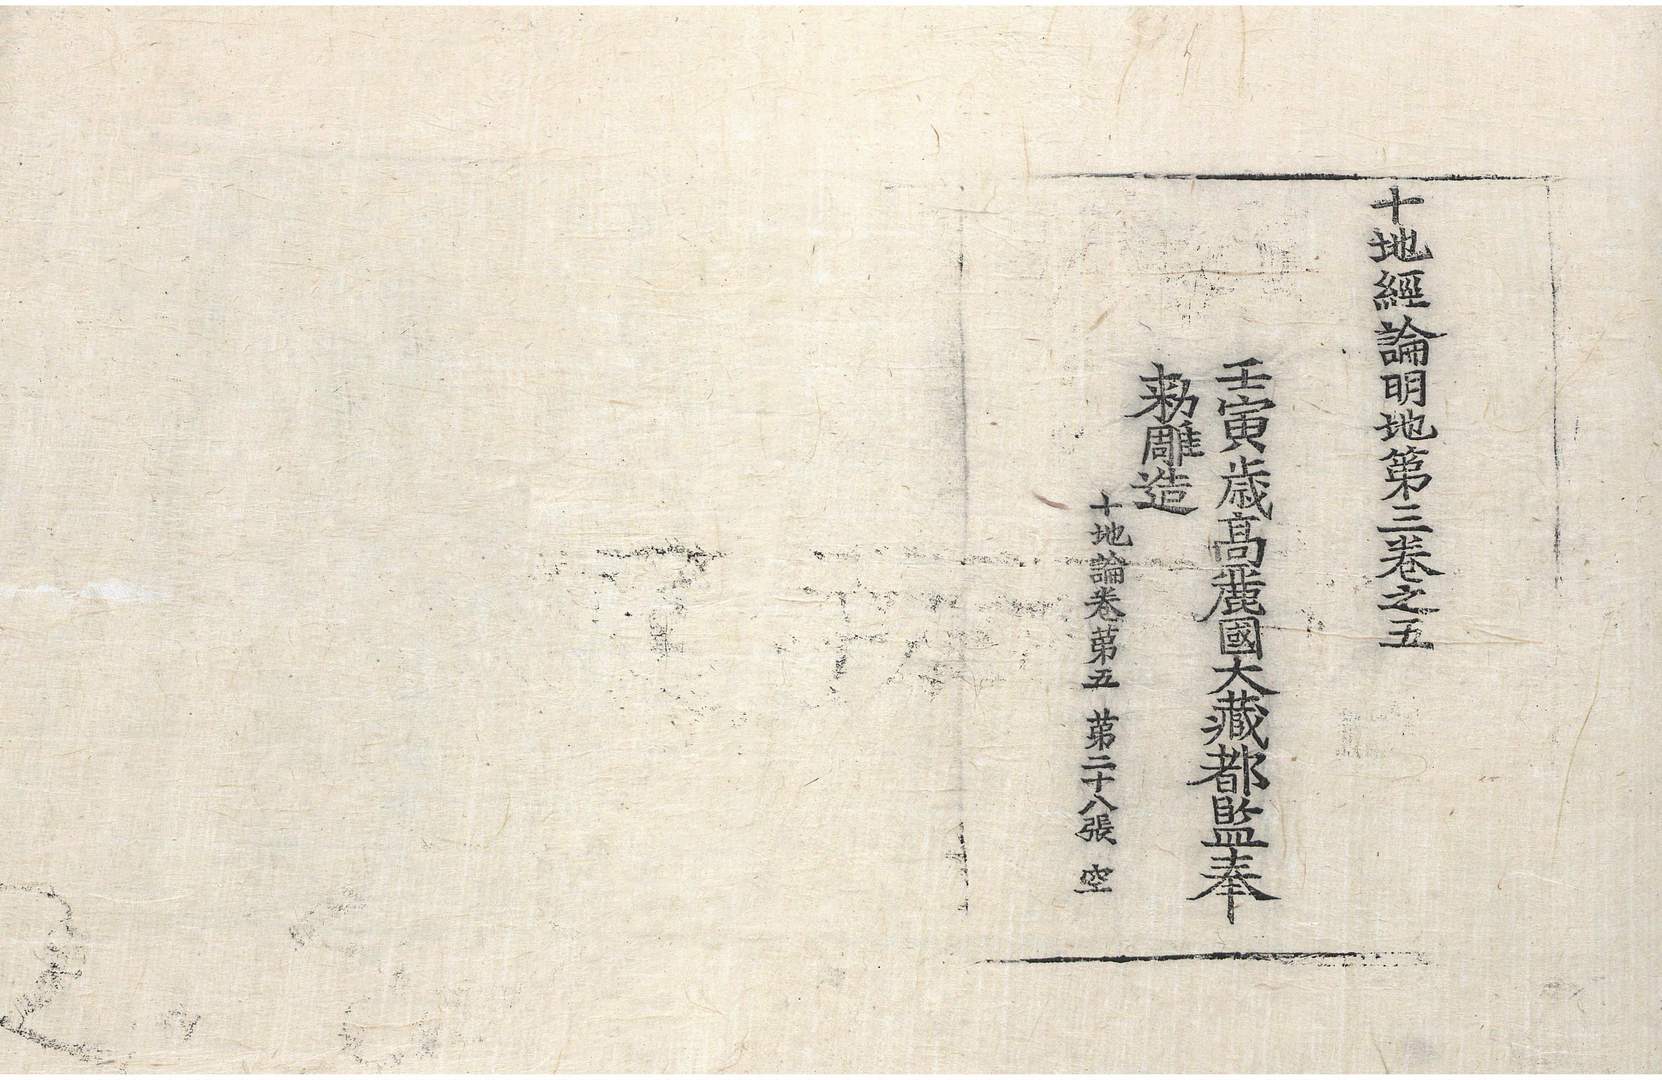 十地經論明地第三卷之五
壬寅歲高麗國大藏都監奉
勑雕造
十地論卷第五 第二十八張 空